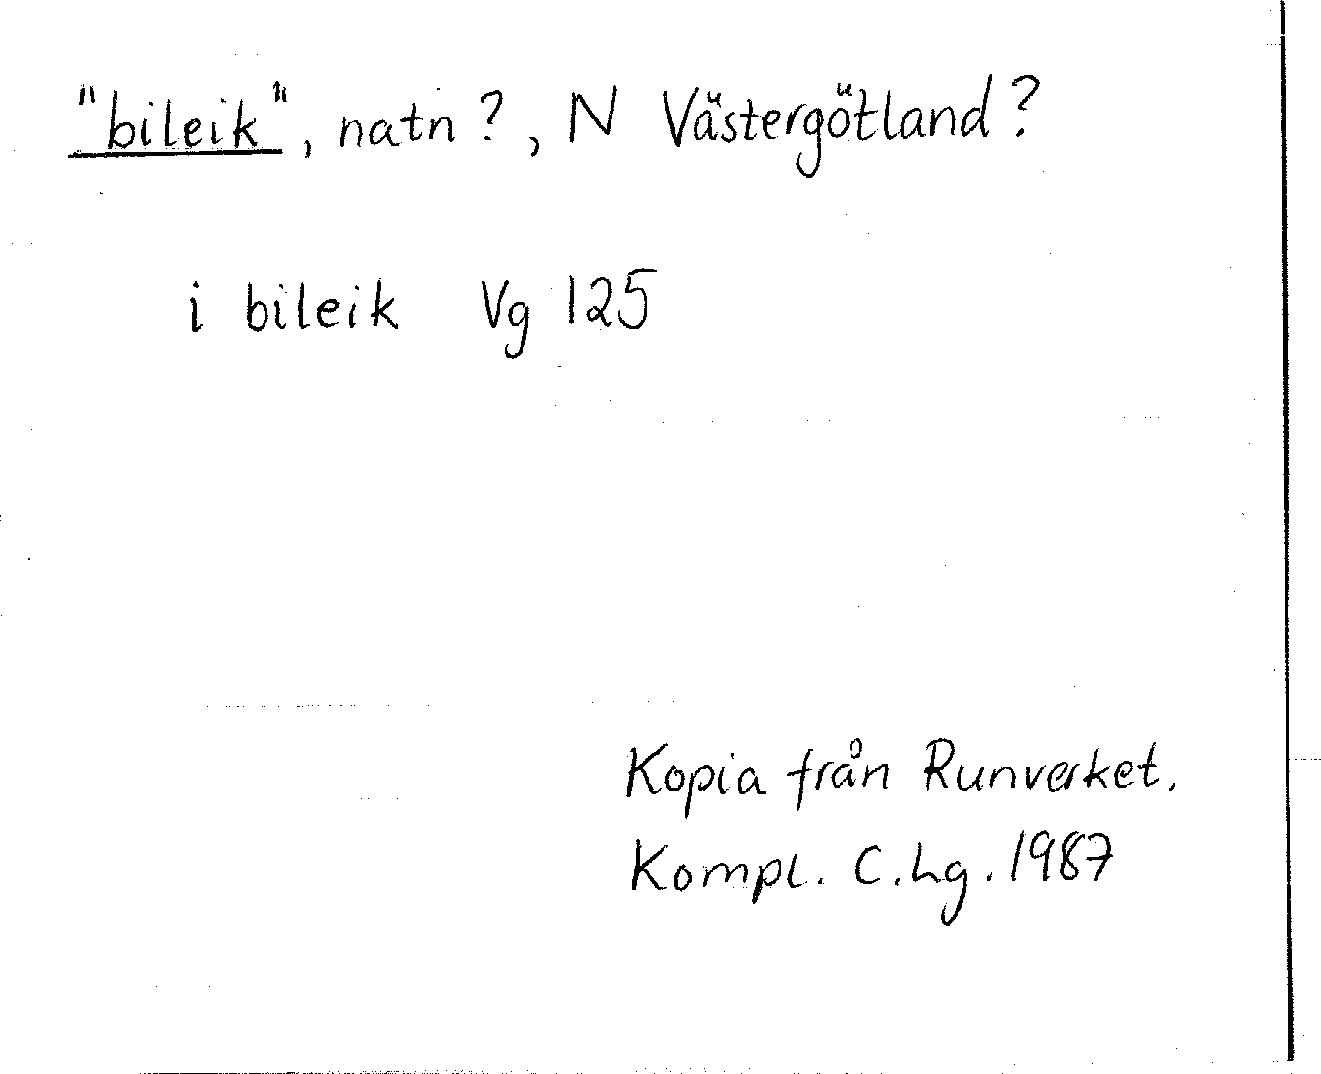 "bileik", natn?, N Västergötland?
i bileik Vg 125
Kopia från Runverket.
Kompl. C.Lg. 1987